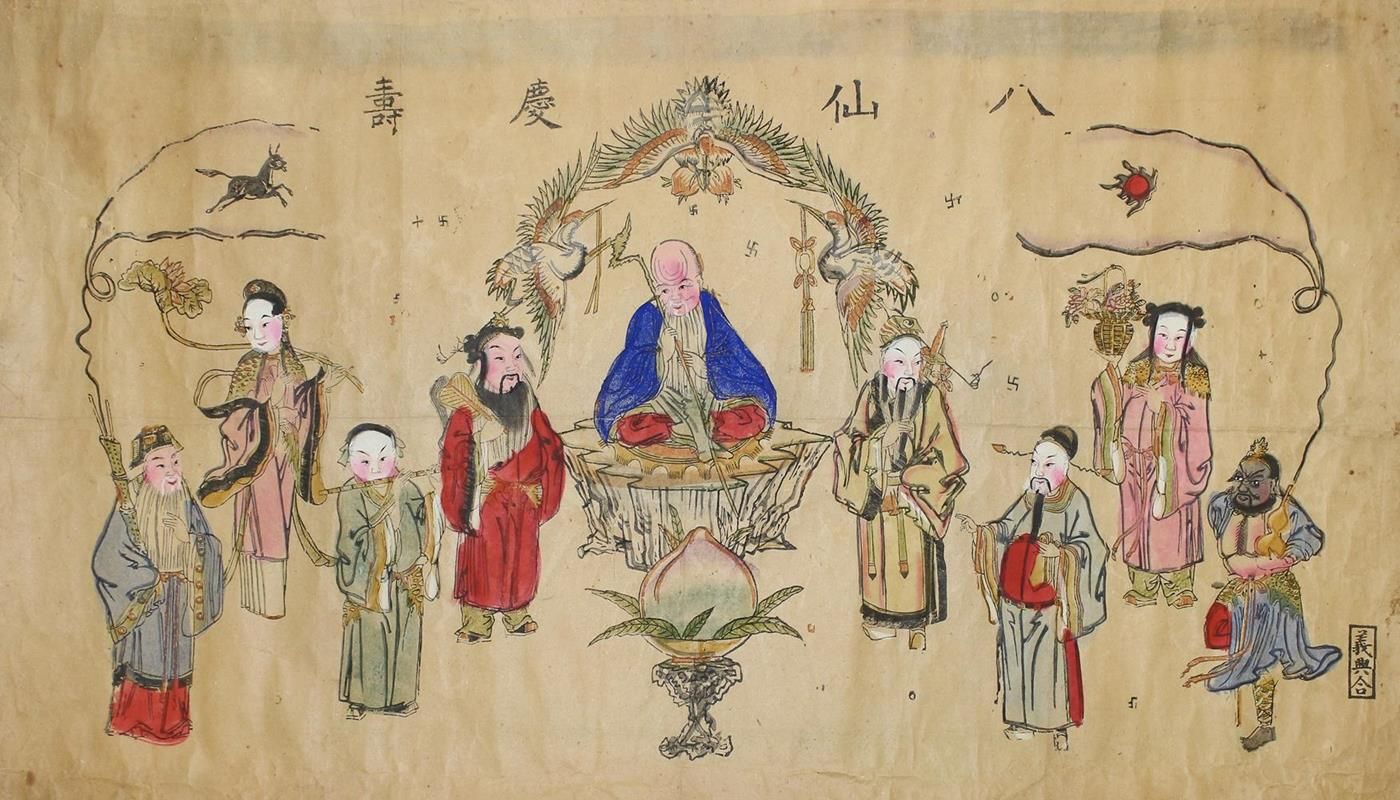 八仙仝慶壽
義興合